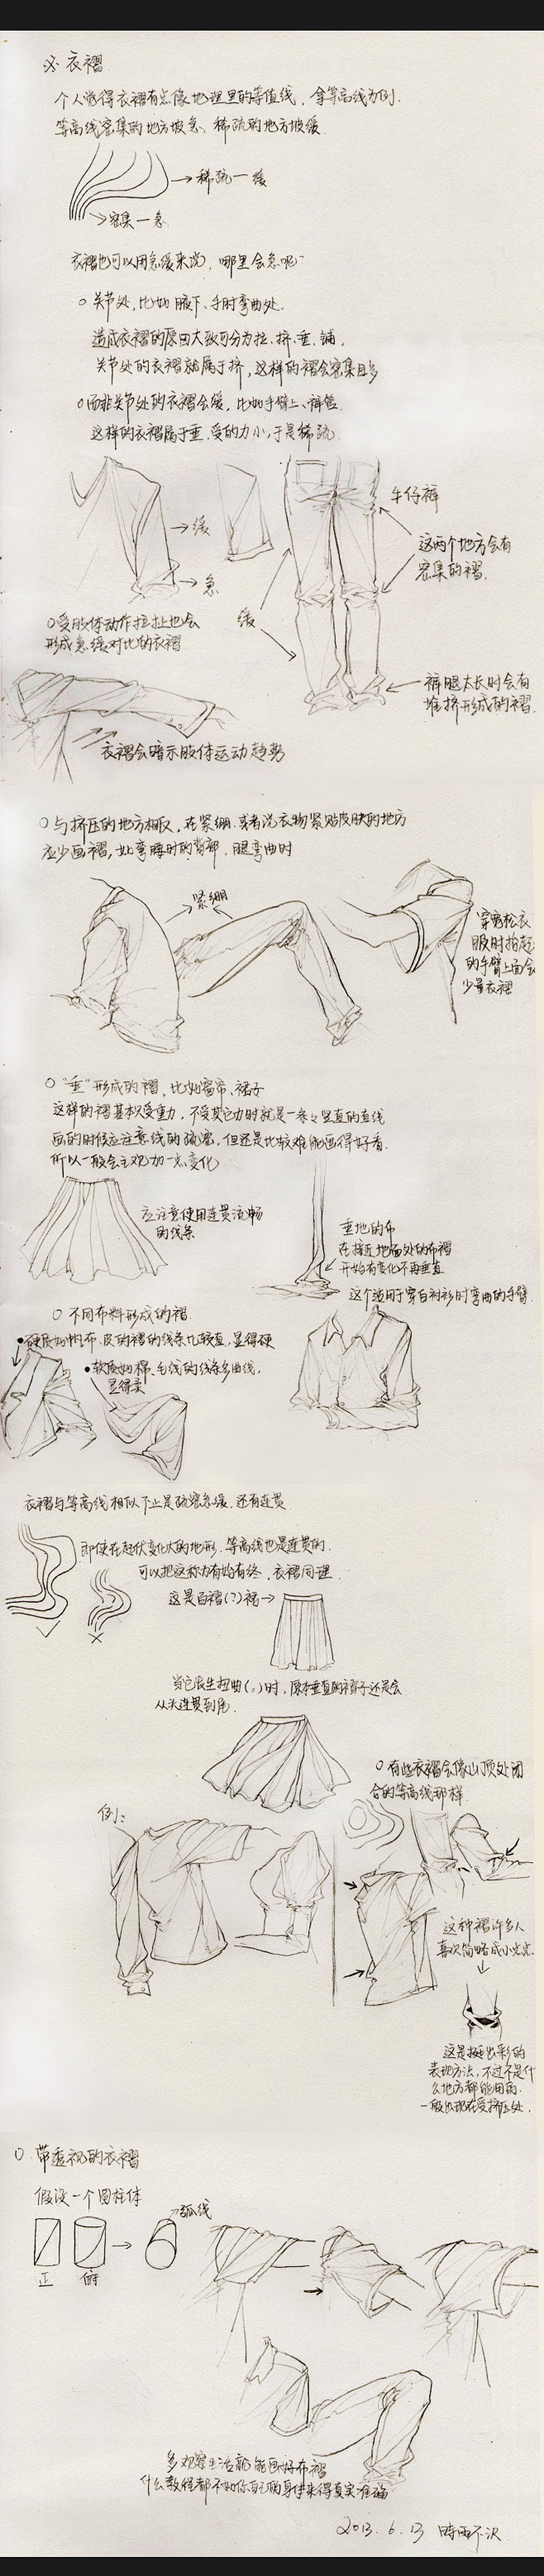 ※ 衣褶
个人觉得衣褶有点像地理里的等值线，拿等高线为例.
等高线密集的地方坡急、稀疏的地方坡缓
→稀疏—缓
→密集—急
衣褶也可以用急缓来说，哪里会急呢~
○ 关节处，比如腋下、手肘弯曲处。
造成衣褶的原因大致可分为拉、挤、垂、铺，
关节处的衣褶就属于挤，这样的褶会密集且多
○而非关节处的衣褶会缓，比如手臂上、裤管
这样的衣褶属于垂.受的力小，于是稀疏
→缓
→急
牛仔裤
这两个地方会有
密集的褶.
缓
○受肢体动作拉扯也会
形成急缓对比的衣褶
裤腿太长时会有
堆挤形成的褶.
衣褶会暗示肢体运动趋势
○与挤压的地方相反，在紧绷.或者说衣物紧贴皮肤的地方
应少画褶，如弯腰时的背部，腿弯曲时
紧绷
穿宽松衣
服时抬起
的手臂上面会
少量衣褶
○"垂"形成的褶，比如窗帘、裙子
这样的褶基本只受重力，不受其它力时就是一条々竖直的直线
画的时候应注意线的疏密，但还是比较难能画得好看.
所以一般会主观加一点变化
应注意使用连贯流畅
的线条
垂地的布
在接近地面处的布褶
开始有变化不再垂直
这个适用于穿白衬衫时弯曲的手臂
○ 不同布料形成的褶
●硬质如帆布、皮的褶的线条比较直，显得硬
●软质如棉、毛线的线条多曲线，
显得柔
衣褶与等高线相似不止是疏密急缓，还有连贯
即使在起伏变化大的地形，等高线也是连贯的.
可以把这称为有始有终，衣褶同理
这是百褶(?)裙→
当它发生扭曲(。)时，原本垂直的褶子还是会
从头连贯到尾.
○ 有些衣褶会像山顶处闭
合的等高线那样
例：
这种褶许多人
喜欢简略成小尖尖.
这是挺出彩的
表现方法，不过不是什
么地方都能用的.
一般出现在受挤压处.
○ 带透视的衣褶
假设一个圆柱体
弧线
正 俯
多观察生活就能画好布褶
什么教程都不如你自己的身体来得真实准确
2013.6.13 時雨不决